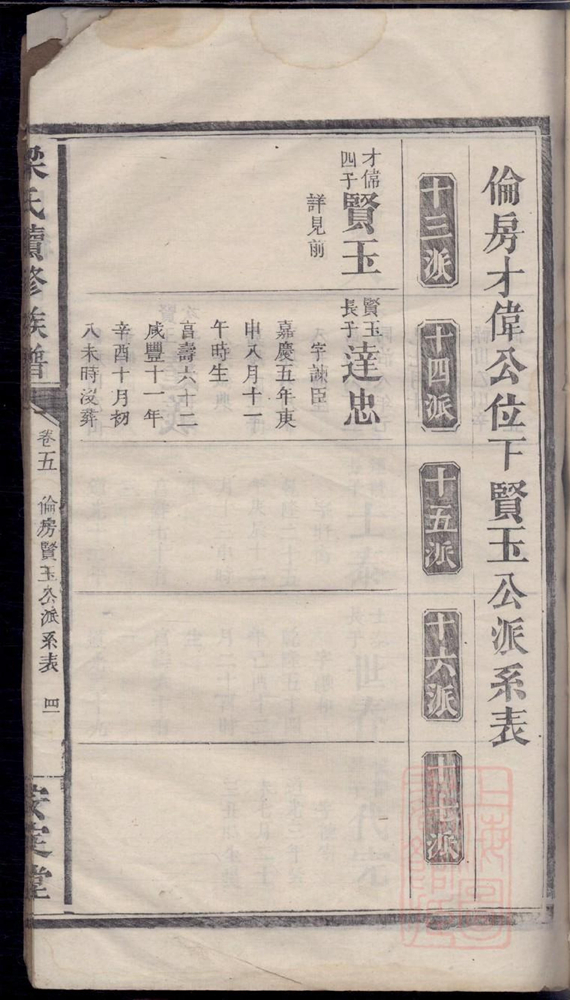 倫房才偉公位下賢玉公派系表
十三派
十四派
十五派
十六派
十七派
才偉四子
賢玉
詳見前
賢玉長子
達忠
字諫臣
嘉慶五年庚
申八月十一
午時生
享壽六十二
咸豐十一年
辛酉十月初
八未時沒葬
梁氏續修族譜
卷五
倫房賢玉公派系表
四
安定堂